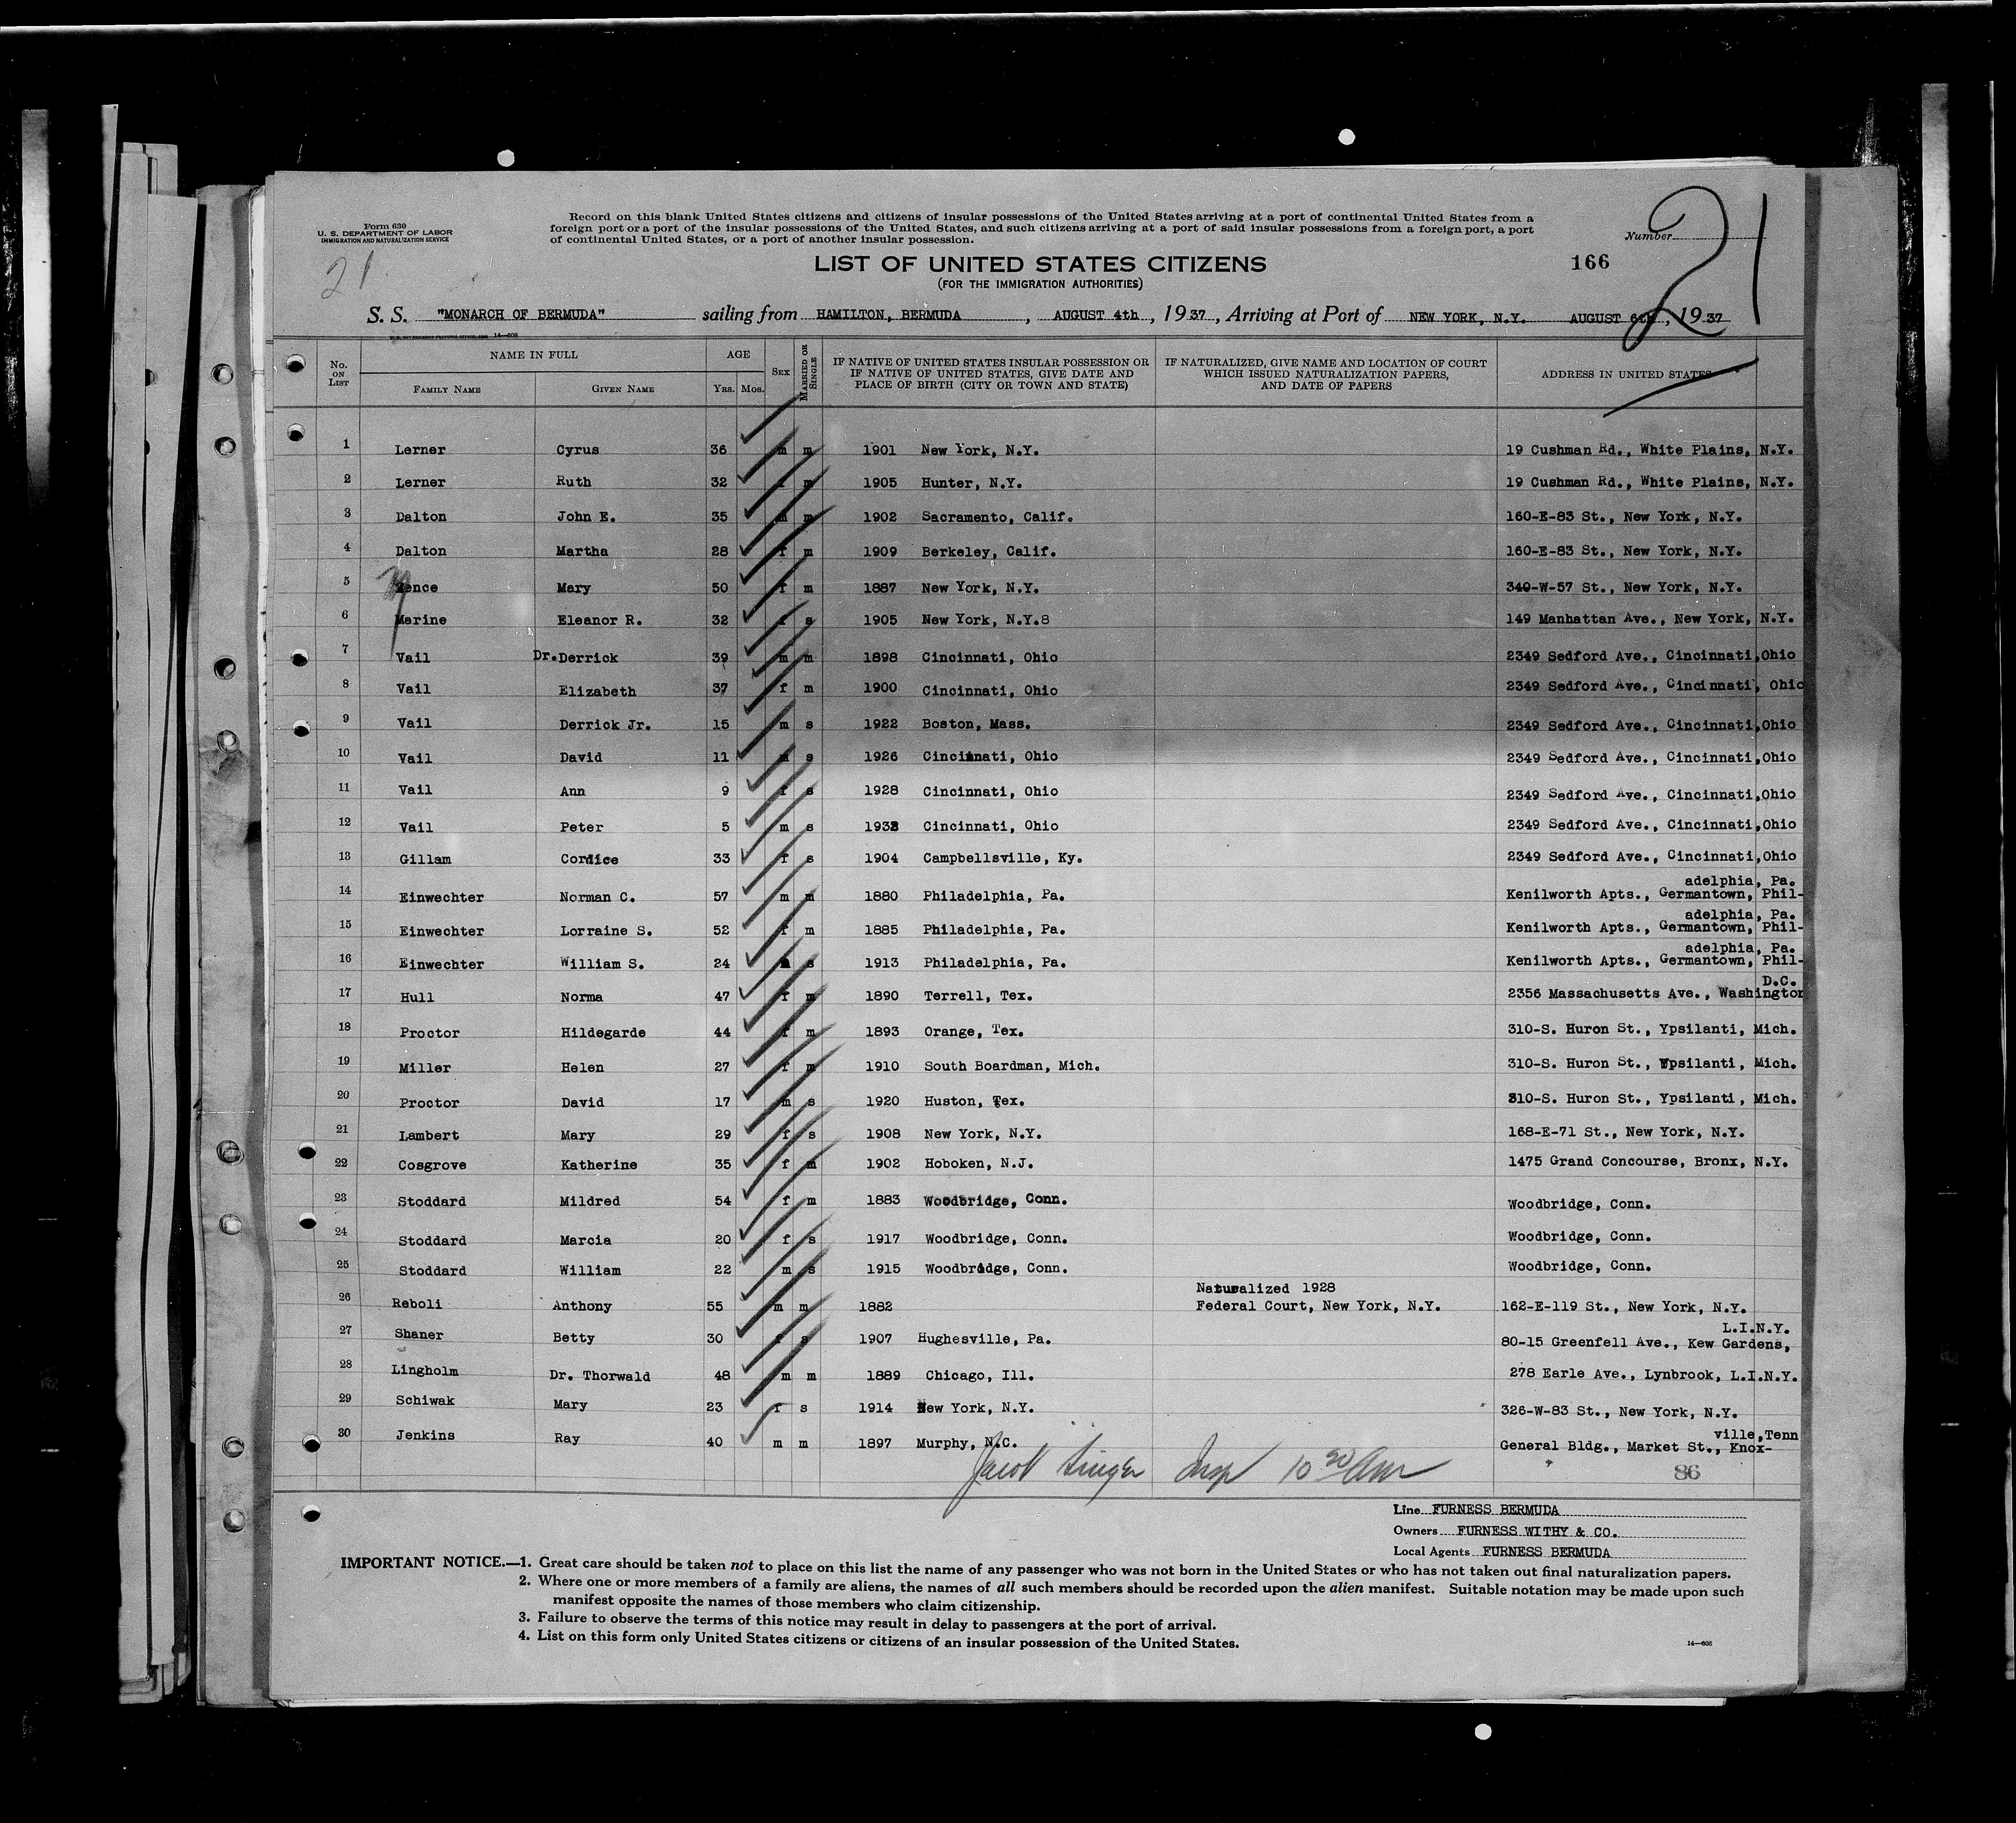 Form 630
U. S. DEPARTMENT OF LABOR
IMMIGRATION AND NATURALIZATION SERVICE
21
Record on this blank United States citizens and citizens of insular possessions of the United States arriving at a port of continental United States from a
foreign port or a port of the insular possessions of the United States, and such citizens arriving at a port of said insular possessions from a foreign port, a port
of continental United States, or a port of another insular possession.
Number 21
LIST OF UNITED STATES CITIZENS
166
(FOR THE IMMIGRATION AUTHORITIES)
S. S. "MONARCH OF BERMUDA" sailing from HAMILTON, BERMUDA, AUGUST 4th, 1937, Arriving at Port of NEW YORK, N.Y. AUGUST 6th, 1937
14—608
No. ON LIST NAME IN FULL FAMILY NAME GIVEN NAME AGE Yrs. Mos. SEX MARRIED OR SINGLE IF NATIVE OF UNITED STATES INSULAR POSSESSION OR IF NATIVE OF UNITED STATES, GIVE DATE AND PLACE OF BIRTH (CITY OR TOWN AND STATE) IF NATURALIZED, GIVE NAME AND LOCATION OF COURT WHICH ISSUED NATURALIZATION PAPERS, AND DATE OF PAPERS ADDRESS IN UNITED STATES
1 Lerner Cyrus 36 m m 1901 New York, N.Y. 19 Cushman Rd., White Plains, N.Y.
2 Lerner Ruth 32 f m 1905 Hunter, N.Y. 19 Cushman Rd., White Plains, N.Y.
3 Dalton John E. 35 m m 1902 Sacramento, Calif. 160-E-83 St., New York, N.Y.
4 Dalton Martha 28 f m 1909 Berkeley, Calif. 160-E-83 St., New York, N.Y.
5 Mary 50 f m 1887 New York, N.Y. 340-W-57 St., New York, N.Y.
6 Marine Eleanor R. 32 f s 1905 New York, N.Y.8 149 Manhattan Ave., New York, N.Y.
7 Vail Dr.Derrick 39 m m 1898 Cincinnati, Ohio 2349 Sedford Ave., Cincinnati,Ohio
8 Vail Elizabeth 37 f m 1900 Cincinnati, Ohio 2349 Sedford Ave., Cincinnati, Ohio
9 Vail Derrick Jr. 15 m s 1922 Boston, Mass. 2349 Sedford Ave., Cincinnati,Ohio
10 Vail David 11 m s 1926 Cincinnati, Ohio 2349 Sedford Ave., Cincinnati,Ohio
11 Vail Ann 9 f s 1928 Cincinnati, Ohio 2349 Sedford Ave., Cincinnati,Ohio
12 Vail Peter 5 m s Cincinnati, Ohio 2349 Sedford Ave., Cincinnati,Ohio
13 Gillam Cordice 33 f s 1904 Campbellsville, Ky. 2349 Sedford Ave., Cincinnati,Ohio
adelphia, Pa.
14 Einwechter Norman C. 57 m m 1880 Philadelphia, Pa. Kenilworth Apts., Germantown, Phil-
adelphia, Pa.
15 Einwechter Lorraine S. 52 f m 1885 Philadelphia, Pa. Kenilworth Apts., Germantown, Phil-
adelphia, Pa.
16 Einwechter William S. 24 s 1913 Philadelphia, Pa. Kenilworth Apts., Germantown, Phil-
D.C.
17 Hull Norma 47 f m 1890 Terrell, Tex. 2356 Massachusetts Ave., Washington
18 Proctor Hildegarde 44 f m 1893 Orange, Tex. 310-S. Huron St., Ypsilanti, Mich.
19 Miller Helen 27 f m 1910 South Boardman, Mich. 310-S. Huron St., Ypsilanti, Mich.
20 Proctor David 17 m s 1920 Huston, Tex. 310-S. Huron St., Ypsilanti, Mich.
21 Lambert Mary 29 f s 1908 New York, N.Y. 168-E-71 St., New York, N.Y.
22 Cosgrove Katherine 35 f m 1902 Hoboken, N.J. 1475 Grand Concourse, Bronx, N.Y.
23 Stoddard Mildred 54 f m 1883 Woodbridge, Conn. Woodbridge, Conn.
24 Stoddard Marcia 20 f s 1917 Woodbridge, Conn. Woodbridge, Conn.
25 Stoddard William 22 m s 1915 Woodbridge, Conn. Woodbridge, Conn.
Naturalized 1928
26 Reboli Anthony 55 m m 1882 Federal Court, New York, N.Y. 162-E-119 St., New York, N.Y.
L.I.N.Y.
27 Shaner Betty 30 f s 1907 Hughesville, Pa. 80-15 Greenfell Ave., Kew Gardens,
28 Lingholm Dr. Thorwald 48 m m 1889 Chicago, Ill. 278 Earle Ave., Lynbrook, L.I.N.Y.
29 Schiwak Mary 23 f s 1914 New York, N.Y. 326-W-83 St., New York, N.Y.
ville,Tenn
30 Jenkins Ray 40 m m 1897 Murphy, N.C. General Bldg., Market St., Knox-
Jacob Singer Insp 10 30 Am
86
Line FURNESS BERMUDA
Owners FURNESS WITHY & CO.
Local Agents FURNESS BERMUDA
IMPORTANT NOTICE.—1. Great care should be taken not to place on this list the name of any passenger who was not born in the United States or who has not taken out final naturalization papers.
2. Where one or more members of a family are aliens, the names of all such members should be recorded upon the alien manifest. Suitable notation may be made upon such
manifest opposite the names of those members who claim citizenship.
3. Failure to observe the terms of this notice may result in delay to passengers at the port of arrival.
4. List on this form only United States citizens or citizens of an insular possession of the United States.
14—608